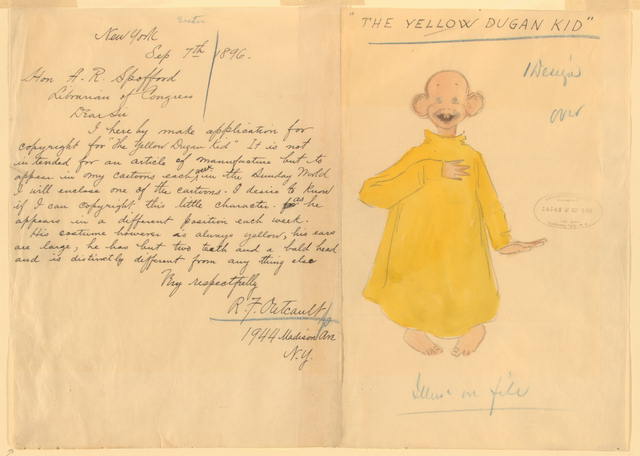 New York
Sep 7th 1896.
Hon A. R. Spofford
Librarian of Congress
Dear Sir
I hereby make application for
copyright for "The Yellow Dugan Kid" It is not
intended for an article of manufacture but to
appear in my cartoons each week in the Sunday World
I will enclose one of the cartoons. I desire to know
if I can copyright this little character. as he
appears in a different position each week.
His costume however is always yellow, his ears
are large, he has but two teeth and a bald head
and is distinctly different from any thing else
Very respectfully
R. F. Outcault
1944 Madison Ave
N.Y.
"THE YELLOW DUGAN KID"
1 Design
over
Illus. on file